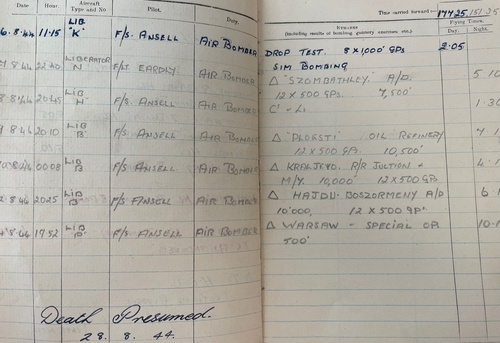 Date Hour Aircraft Type and No Pilot Duty
REMARKS
(including results of bombing, gunnery, exercises, etc.)
Time carried forward :—
Flying Times
Day Night
6.8.44 11.15 LIB "K" F/S. ANSELL AIR BOMBER DROP TEST. 8 X 1,000' GPs 2.05
SIM BOMBING
22.40 LIBERATOR F/LT EARDLY AIR BOMBER △ "SZOMBATHLEY" A/D. 5.10
12 X 500 GPs. 7,500'
20.45 LIB F/S. ANSELL AIR BOMBER 1.3
9.8.44 20.10 LIB B F/S. ANSELL AIR BOMBER △ "PLOESTI" OIL REFINERY
12 X 500 GP. 10,500'
00.08 LIB B F/S. ANSELL AIR BOMBER △ KRALJEVO. R/R JUCTION +
M/Y. 10,000' 12 X 500 GP
20.25 LIB B F/S. ANSELL AIR BOMBER △ HAJDU BOSZORMENY A/D
10,000, 12 X 500 GPs
17.52 LIB B F/S ANSELL AIR BOMBER △ WARSAW - SPECIAL OP
Death Presumed.
28. 8. 44.